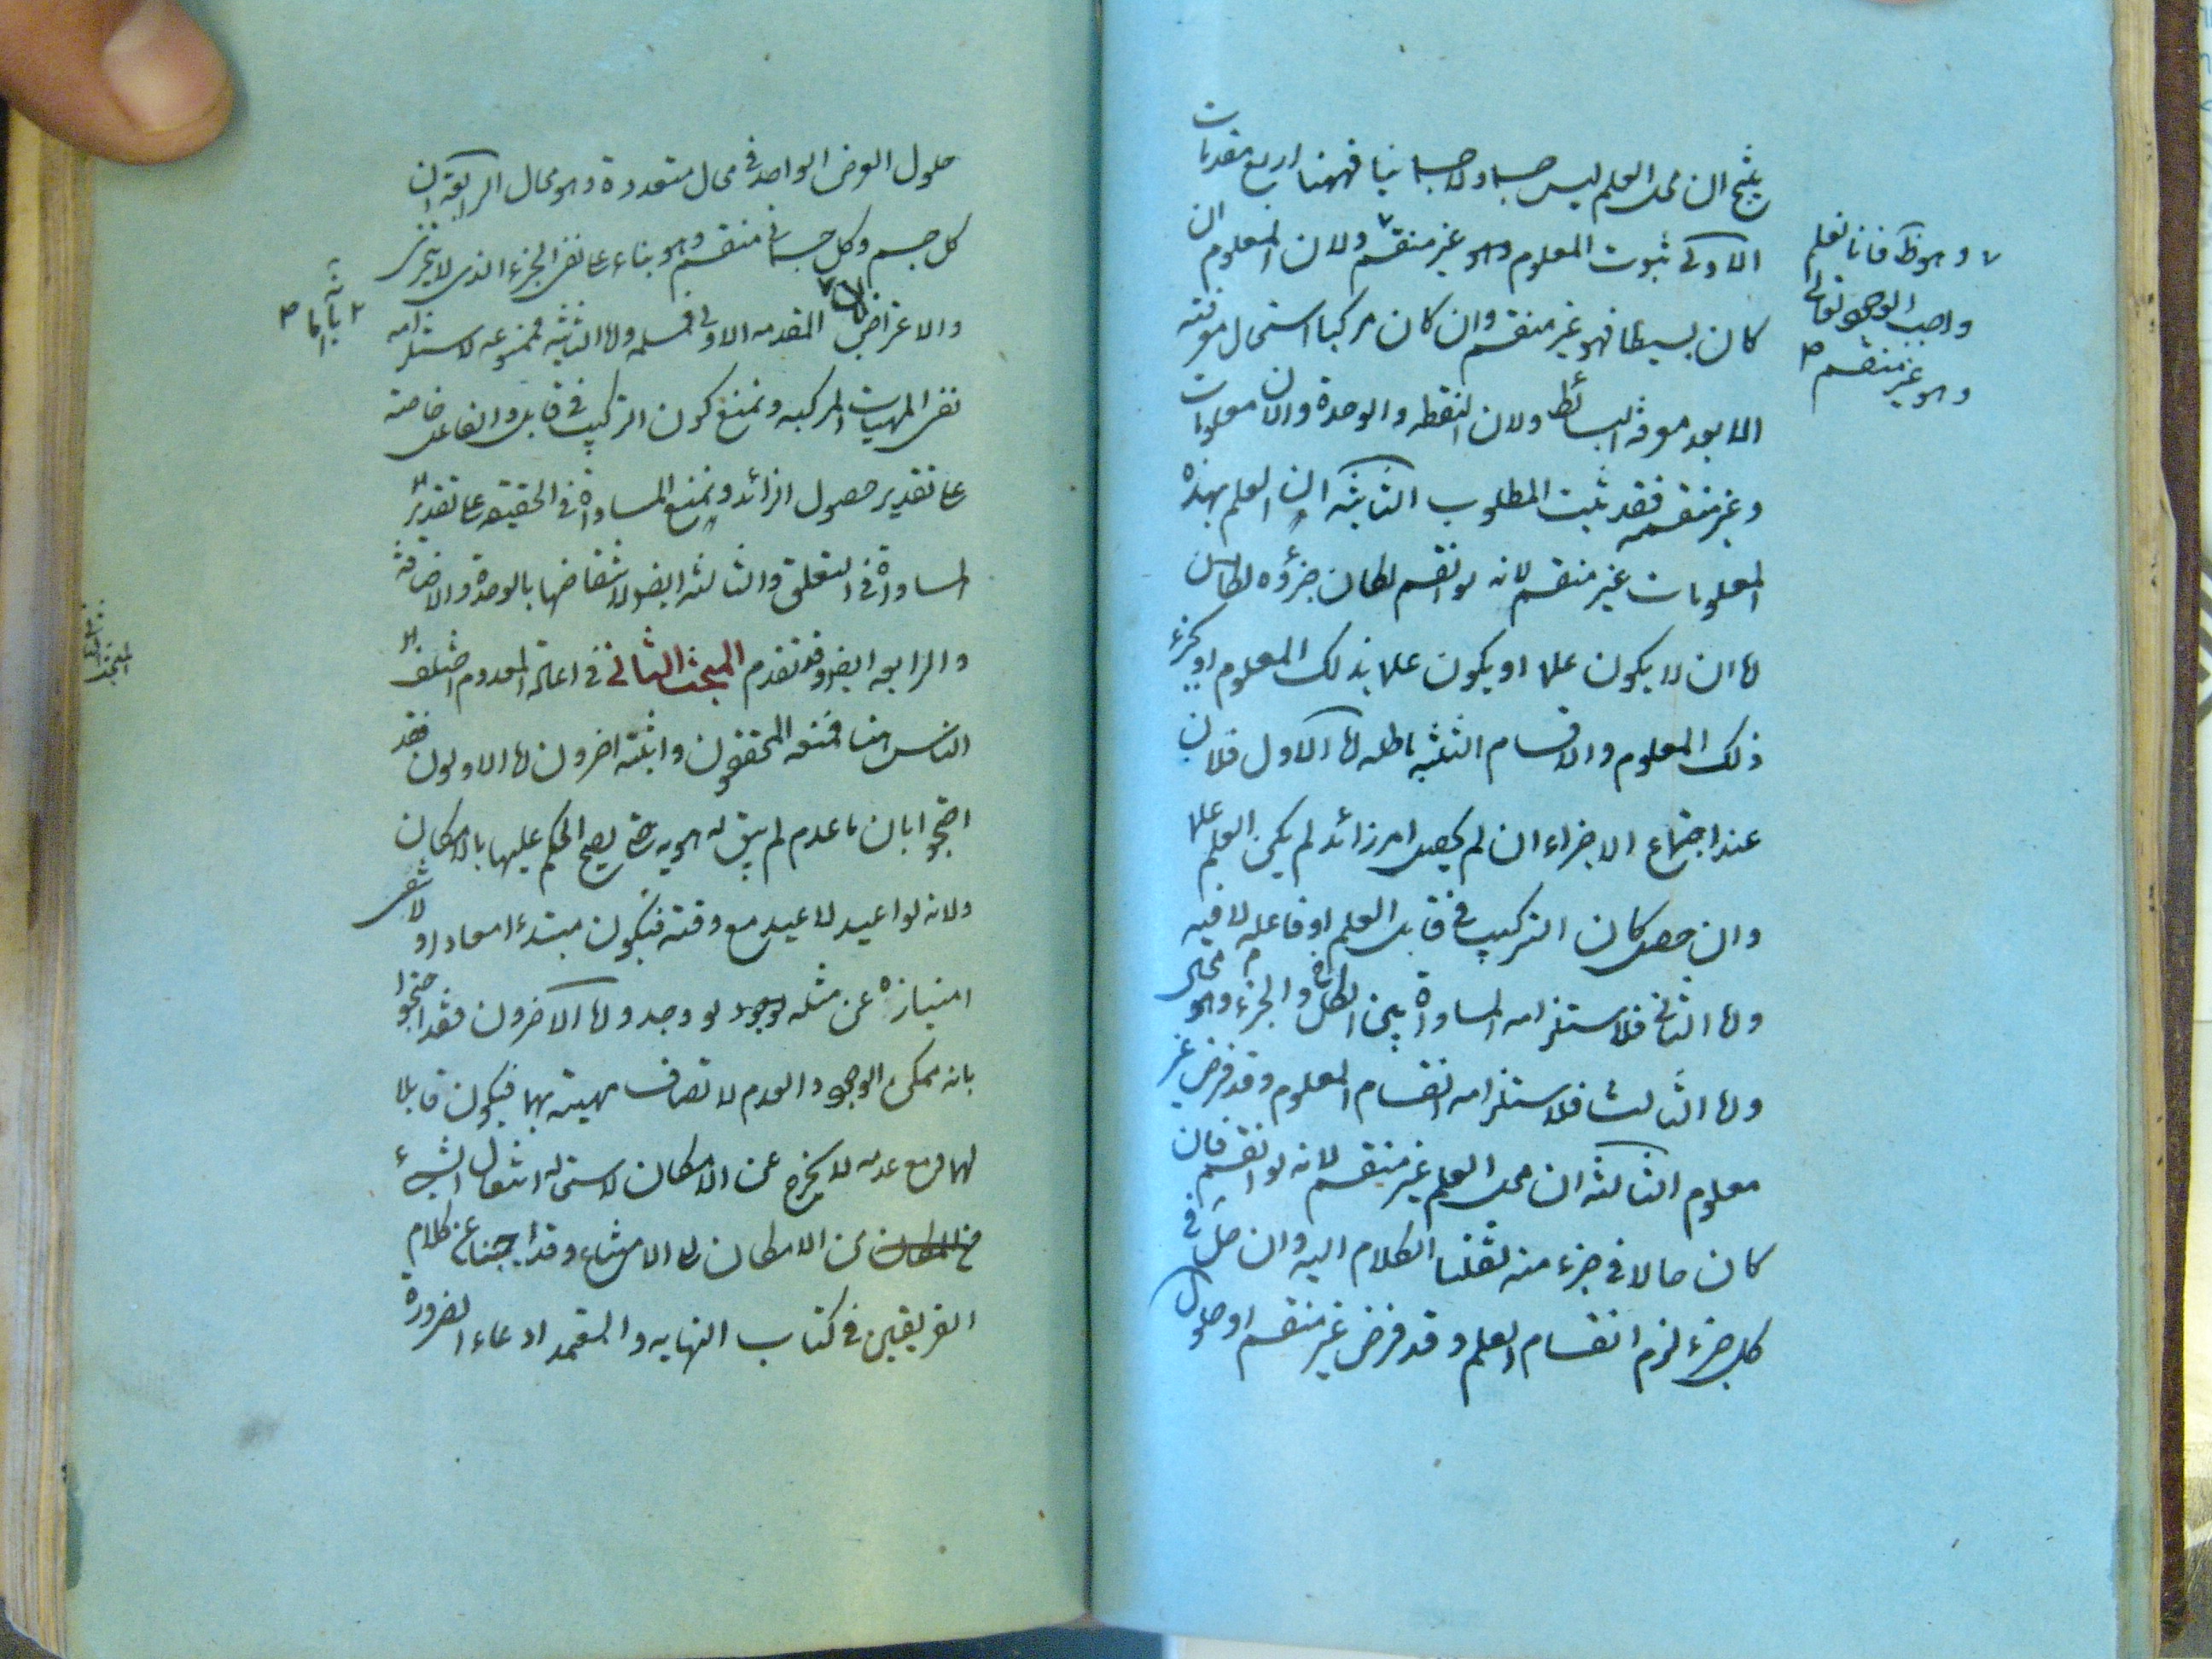 ينتج ان محل العلم ليس جسما ولا جسمانيا فههنا اربع مقدمات
الاولى ثبوت المعلوم وهو غير منقسم ولان المعلوم ان
كان بسيطا فهو غير منقسم وان كان مركبا استحال معرفته
الا بعد معرفة البسائط ولان النقطه والوحدة والان معلومات
وغير منقسمه فقد ثبت المطلوب الثانية ان العلم بهذه
المعلومات غير منقسم لانه لو انقسم لكان جزؤه
اما ان لا يكون علما او يكون علما بذلك المعلوم او بجزء
ذلك المعلوم والاقسام الثلثه باطله اما الاول فلان
عند اجتماع الاجزاء ان لم يحصل امر زائد لم يكن العلم علما
وان حصل كان التركيب في قابل العلم او فاعله لا فيه
واما الثاني فلاستلزامه المساواة بين الكل والجزء وهو محال
واما الثالث فلاستلزامه انقسام المعلوم وقد فرض غير
معلوم الثالثه ان محل العلم غير منقسم لانه لو انقسم فان
كان حالا في جزء منه نقلنا الكلام اليه وان حل في
كل جزء لزم انقسام العلم وقد فرض غير منقسم او حلول
وهو ظ فانا نعلم
واجب الوجود تعالى
وهو غير منقسم
حلول العرض الواحد في محال متعددة وهو محال الرابعة ان
كل جسم وكل جسماني منقسم وهو بناء على نفي الجزء الذي لا يتجزى
والاعتراض المقدمه الاولى مسلمه واما الثانية فممنوعه لاستلزامه
نفي المهيات المركبه ونمنع كون التركيب في قابل والفاعل خاصته
على تقدير حصول الزائد ونمنع المساواة في الحقيقه على تقدير
المساواة في التعلق والثالثه ايضا لانتقاضها بالوحدة والاضافة
والرابعه ايضا وقد تقدم المبحث الثاني في اعادة المعدوم اختلف
الناس هنا فمنعه المحققون واثبته اخرون اما الاولون فقد
احتجوا بان ما عدم لم يبق له هويه حتى يصح الحكم عليها بالامكان
ولانه لو اعيد لاعيد مع وقته فيكون مبتدءا معادا ولانتفى
امتيازه عن مثله لو وجد واما الاخرون فقد احتجوا
بانه ممكن الوجود والعدم لاتصاف مهيته بهما فيكون قابلا
لهما ومع عدمه لا يخرج عن الامكان لاستحالة انتقال الشيء
من الامكان الى الامتناع وقد اجبنا عن كلام
الفريقين في كتاب النهايه والمعتمد ادعاء الضرورة
المبحث الثاني